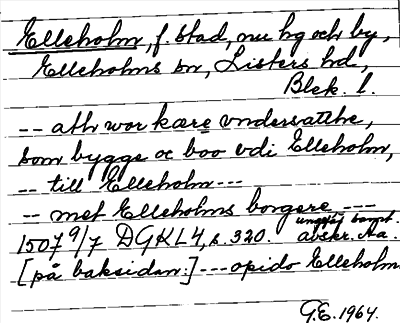 Elleholm, f. stad, nu hg och by,
Elleholms sn, Listers hd,
Blek. l.
-- ath wor kære vndersatthe,
som bygge oc boo vdi Elleholm,
-- till Elleholm ---
-- met Elleholms borgere ---
1507 9/7 DGKL 4, s. 320. ungefär samt. avskr. Aa.
[på baksidan:] --- opido Elleholm
G.E. 1964.